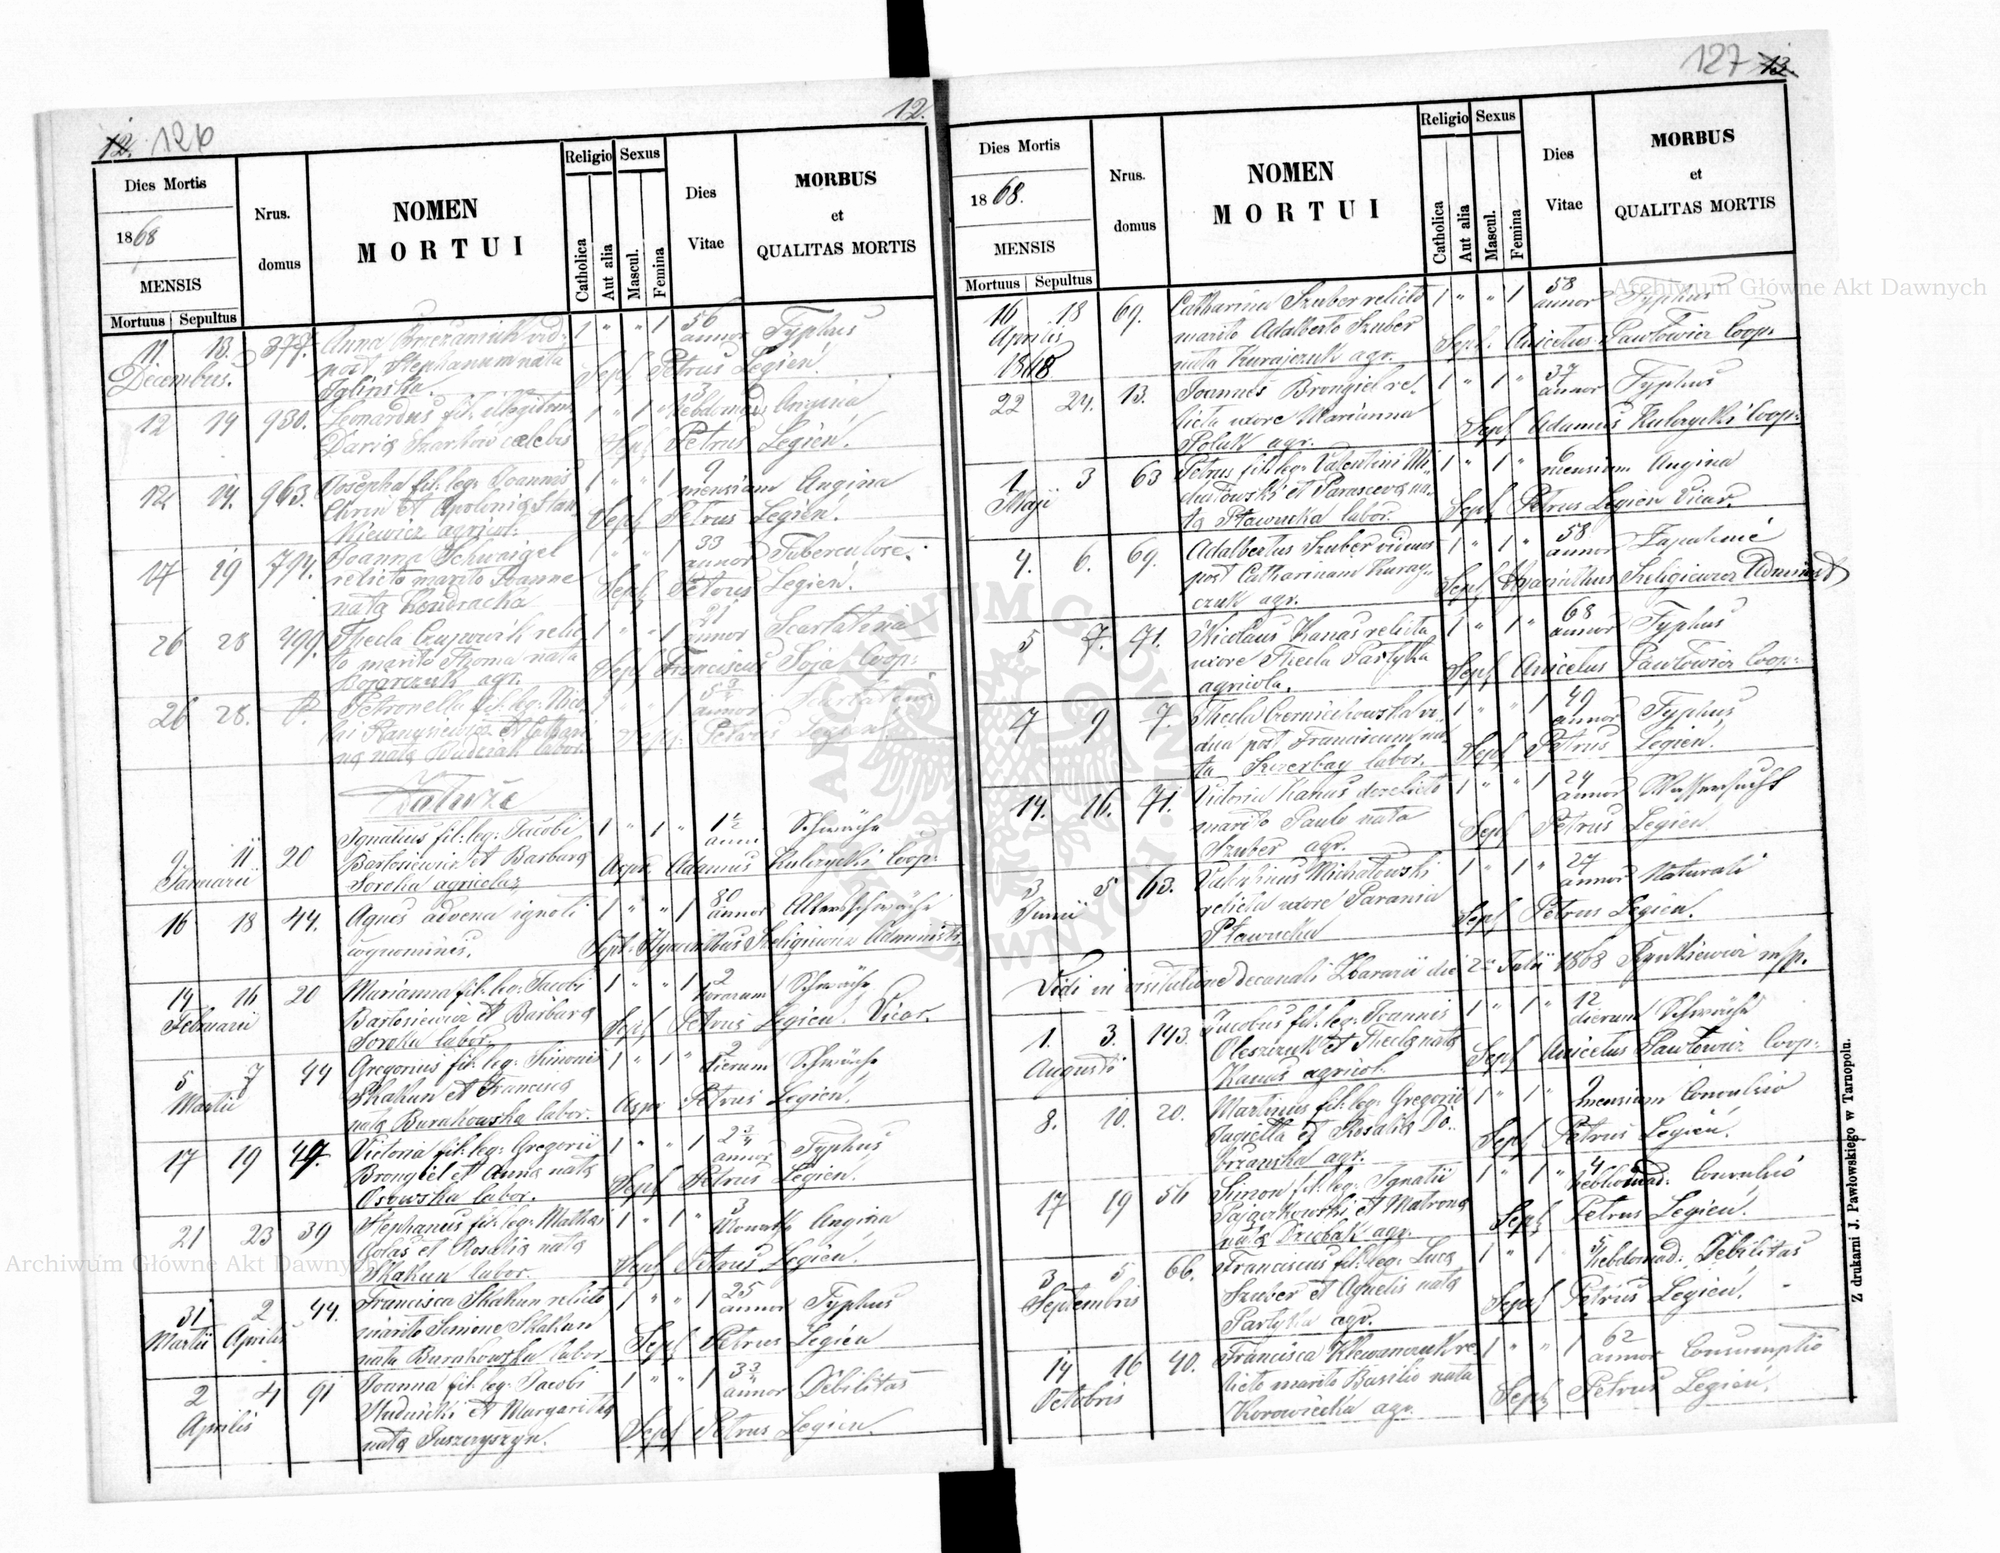 12. 126
12.
Dies Mortis
1868
MENSIS
Mortuus Sepultus
Nrus. domus
NOMEN
MORTUI
Religio
Catholica
Aut alia
Sexus
Mascul.
Femina
Dies
Vitae
MORBUS
et
QUALITAS MORTIS
11 13. 377. Anna vid: 1 " " 1 56 annor Typhus
Decembris. post Stephanum nata Sep. Petrus Legień.
Iglińska.
12 14 930. Leonardus fil: illegitim 1 " 1 " 3 hebdomad Angina
Daria caelebis Sep. Petrus Legień.
12 14. 963. Josepha fil: leg: Joannis 1 " " 1 9 mensium Angina
et Apolonia Stan Sep. Petrus Legień.
kiewicz agricol.
17 19 794. Joanna Schwaigel 1 " " 1 33 annor Tuberculose.
relicto marito Joanne Sep. Petrus Legień.
nata Kendracka
26 28 499. Thecla relic 1 " " 1 21 annor Scarlatina
to marito Thoma nata Sep. Franciscus Soja Coop:
Bojarczuk agr.
26 28. Petronella fil: leg: Nico 1 " " 1 annor Scarlatina
lai et Cathari Sep. Petrus Legień.
na nata labor.
Załuże
9 11 20 Ignatius fil: leg: Jacobi 1 " 1 " 1½ anni Schwäche
Januarii Bartosiewicz et Barbara Adamus Kulczycki Coop:
Soroka agricolae
16 18 44. Agnes advena ignoti 1 " " 1 80 annor Altersschwäche
cognominis. Sept. Hyacinthus Szeligiewicz Administr.
14 16 20 Marianna fil: leg: Jacobi 1 " " 1 2 horarum Schwäche
Februarii Bartosiewicz et Barbara Sep. Petrus Legień. Vicar.
Soroka labor.
5 7 44 Gregorius fil: leg: Simonis 1 " 1 " 2 dierum Schwäche
Martii Skakun et Francisca Petrus Legień.
nata Burakowska labor.
17 19 47. Victoria fil: leg: Gregorii 1 " " 1 2¾ annor Typhus
Brongiel et Anna nata Sep. Petrus Legień.
Osowska labor.
21 23 39 Stephanus fil: leg: Mathia 1 " 1 " 3 Monath Angina
Golas et Rosalia nata Sep. Petrus Legień.
Skakun labor.
31 2 44. Francisca Skakun relicto 1 " " 1 25 annor Typhus
Martii Aprilis marito Simone Skakun Sep. Petrus Legień
nata Burakowska labor.
2 4 91 Joanna fil: leg: Jacobi 1 " " 1 annor Debilitas
Aprilis et Margaritha Sep. Petrus Legień.
nata
127 13.
Dies Mortis
1868.
MENSIS
Mortuus Sepultus
Nrus.
domus
NOMEN
MORTUI
Religio
Catholica
Aut alia
Sexus
Mascul.
Femina
Dies
Vitae
MORBUS
et
QUALITAS MORTIS
16 18 69. Catharina Szuber relicto 1 " " 1 58 annor Typhus
Aprilis marito Adalberto Szuber Sep. Anicetus Pawłowicz Coop.
1868 nata Kurajczuk agr.
22 24. 13. Joannes Brongiel re 1 " 1 " 37 annor Typhus
licta uxore Marianna Sep. Adamus Kulczycki Coop:
Polak agr.
1 3 63 Petrus fil: leg: Valentini Mi 1 " 1 " 6 mensium Angina
Maji chałowski et Parasceva na Sep. Petrus Legień Vicar.
ta Pławucka labor.
4. 6. 69. Adalbertus Szuber viduus 1 " 1 " 58 annor
post Catharinam Kuraj Sep. Hyacinthus Szeligiewicz Administr
czuk agr.
5 7. 71. Nicolaus Kanas relicta 1 " 1 " 68 annor Typhus
uxore Thecla Partyka Sep. Anicetus Pawłowicz Coop.
agricola.
7 9 7. Thecla Czerniechowska vi 1 " " 1 49 annor Typhus
dua post Franciscum na Sep. Petrus Legień.
ta Szwerbay labor.
14. 16. 71. Victoria Kanas derelicto 1 " " 1 24 annor Wassersucht
marito Paulo nata Sep. Petrus Legień
Szuber agr.
3 5 63. Valentinus Michałowski 1 " 1 " 27 annor Naturali
Junii relicta uxore Parania Sep. Petrus Legień.
Pławucka
Vidi in visitatione decanali Zbarazii die 2 Julii 1868 mp.
1. 3. 143. Jacobus fil: leg: Joannis 1 " 1 " 12 dierum Schwäche
Augusti Oleszczuk et Thecla nata Sep. Anicetus Pawłowicz Coop:
Kanas agricol.
8. 10. 20. Martinus fil: leg: Gregorii 1 " 1 " 2 mensium Convulsio
Jagiełła et Rosalia Do Sep. Petrus Legień.
brzańska agr.
17 19 56 Simon fil: leg: Ignatii 1 " 1 " 4 hebdomad: Convulsio
Pajączkowski et Matrona Sep. Petrus Legień.
nata Dziubak agr.
3 5 66. Franciscus fil: leg: Luca 1 " 1 " 5 hebdomad: Debilitas
Septembris Szuber et Agnetis nata Sep. Petrus Legień.
Partyka agr.
14 16 40. Francisca Klewanczuk re 1 " " 1 62 annor Consumptio
Octobris licto marito Basilio nata Sep. Petrus Legień.
Korowiecka agr.
Z drukarni J. Pawłowskiego w Tarnopolu.
Archiwum Główne Akt Dawnych
Archiwum Główne Akt Dawnych
ARCHIWUM GŁÓWNE AKT DAWNYCH